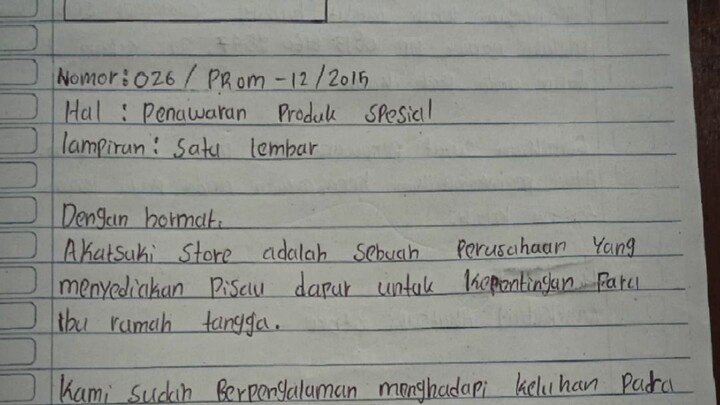 Nomor : 026 / PRom - 12 / 2015
Hal : Penawaran Produk Spesial
lampiran : Satu lembar
Dengan hormat,
Akatsuki Store adalah sebuah Perusahaan Yang
menyediakan Pisau dapur untuk Kepentingan Para
ibu rumah tangga.
Kami sudah Berpengalaman menghadapi keluhan Pada